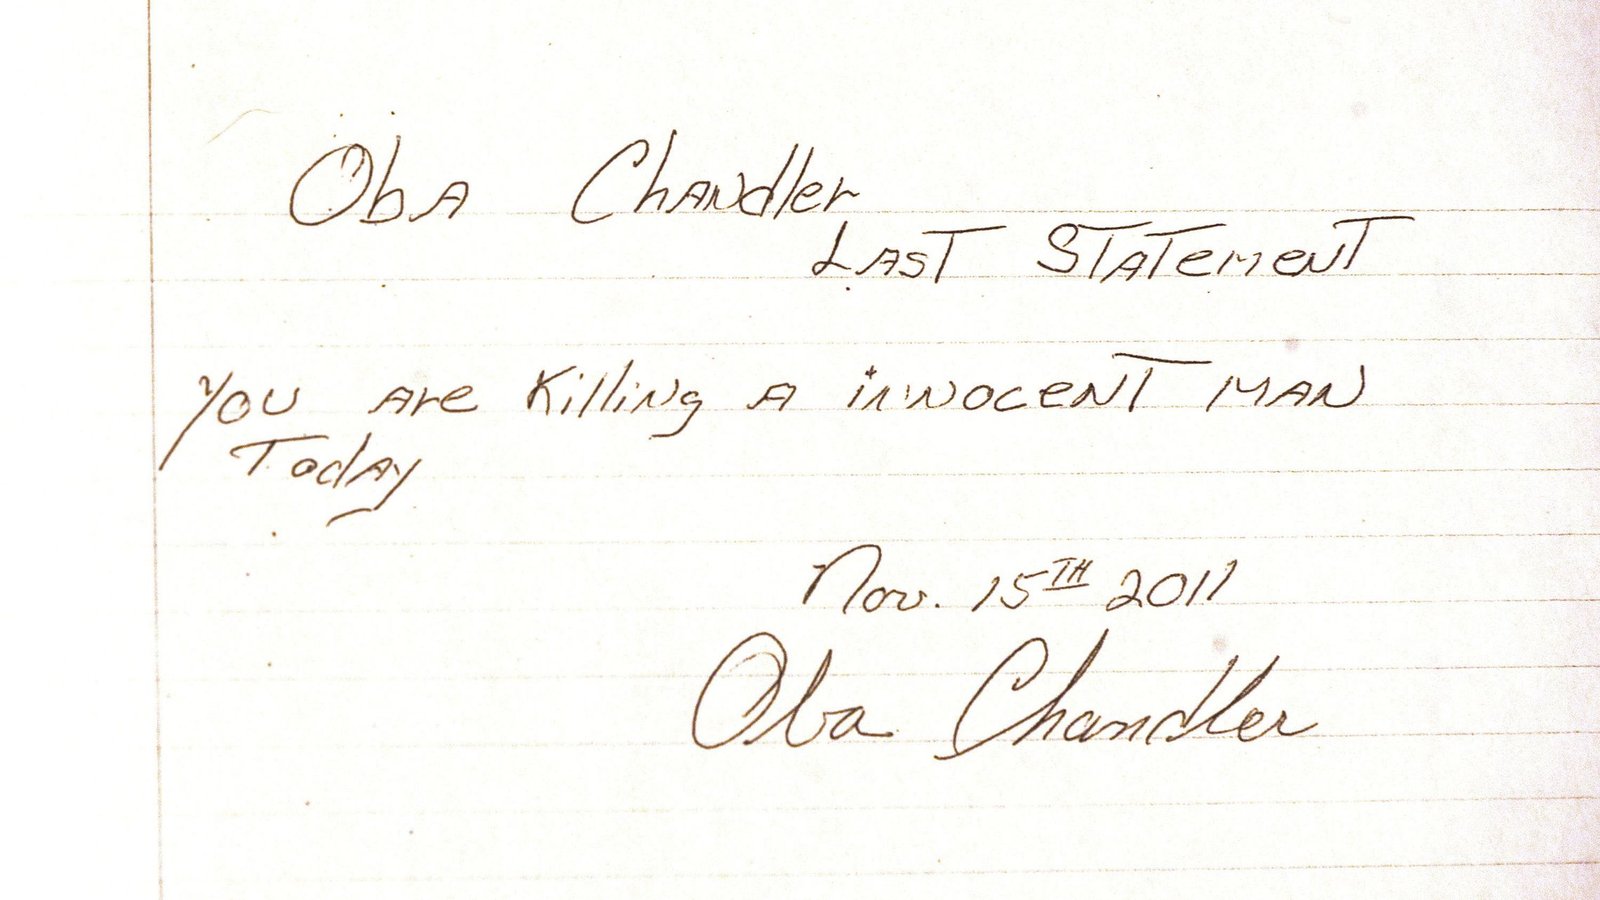 Oba Chandler
Last Statement
You are killing a innocent man
Today
Nov. 15TH 2011
Oba Chandler